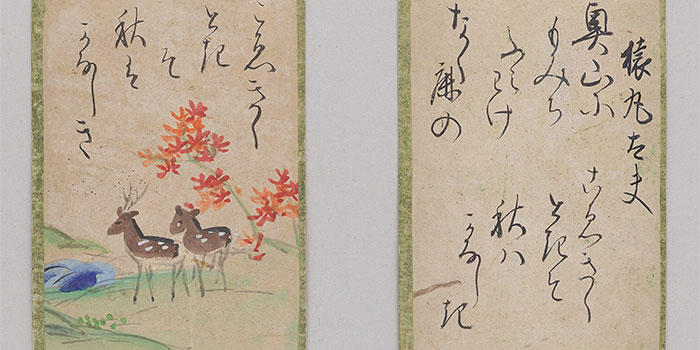 猿丸太夫
奥山に
もみち
ふみわけ
なく鹿の
こゑきく
ときそ
秋ハ
かなしき
こゑきく
とき
そ
秋は
かなしき